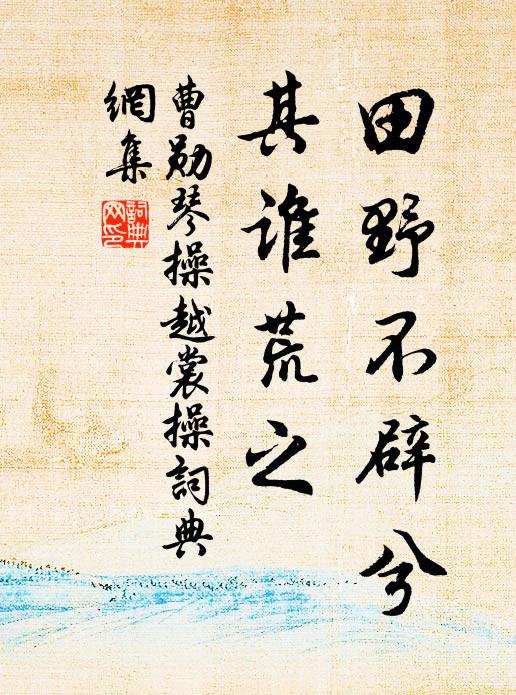 田野不辟兮
其谁荒之
曹勋琴操越裳操詞典
網集
詞典
网印